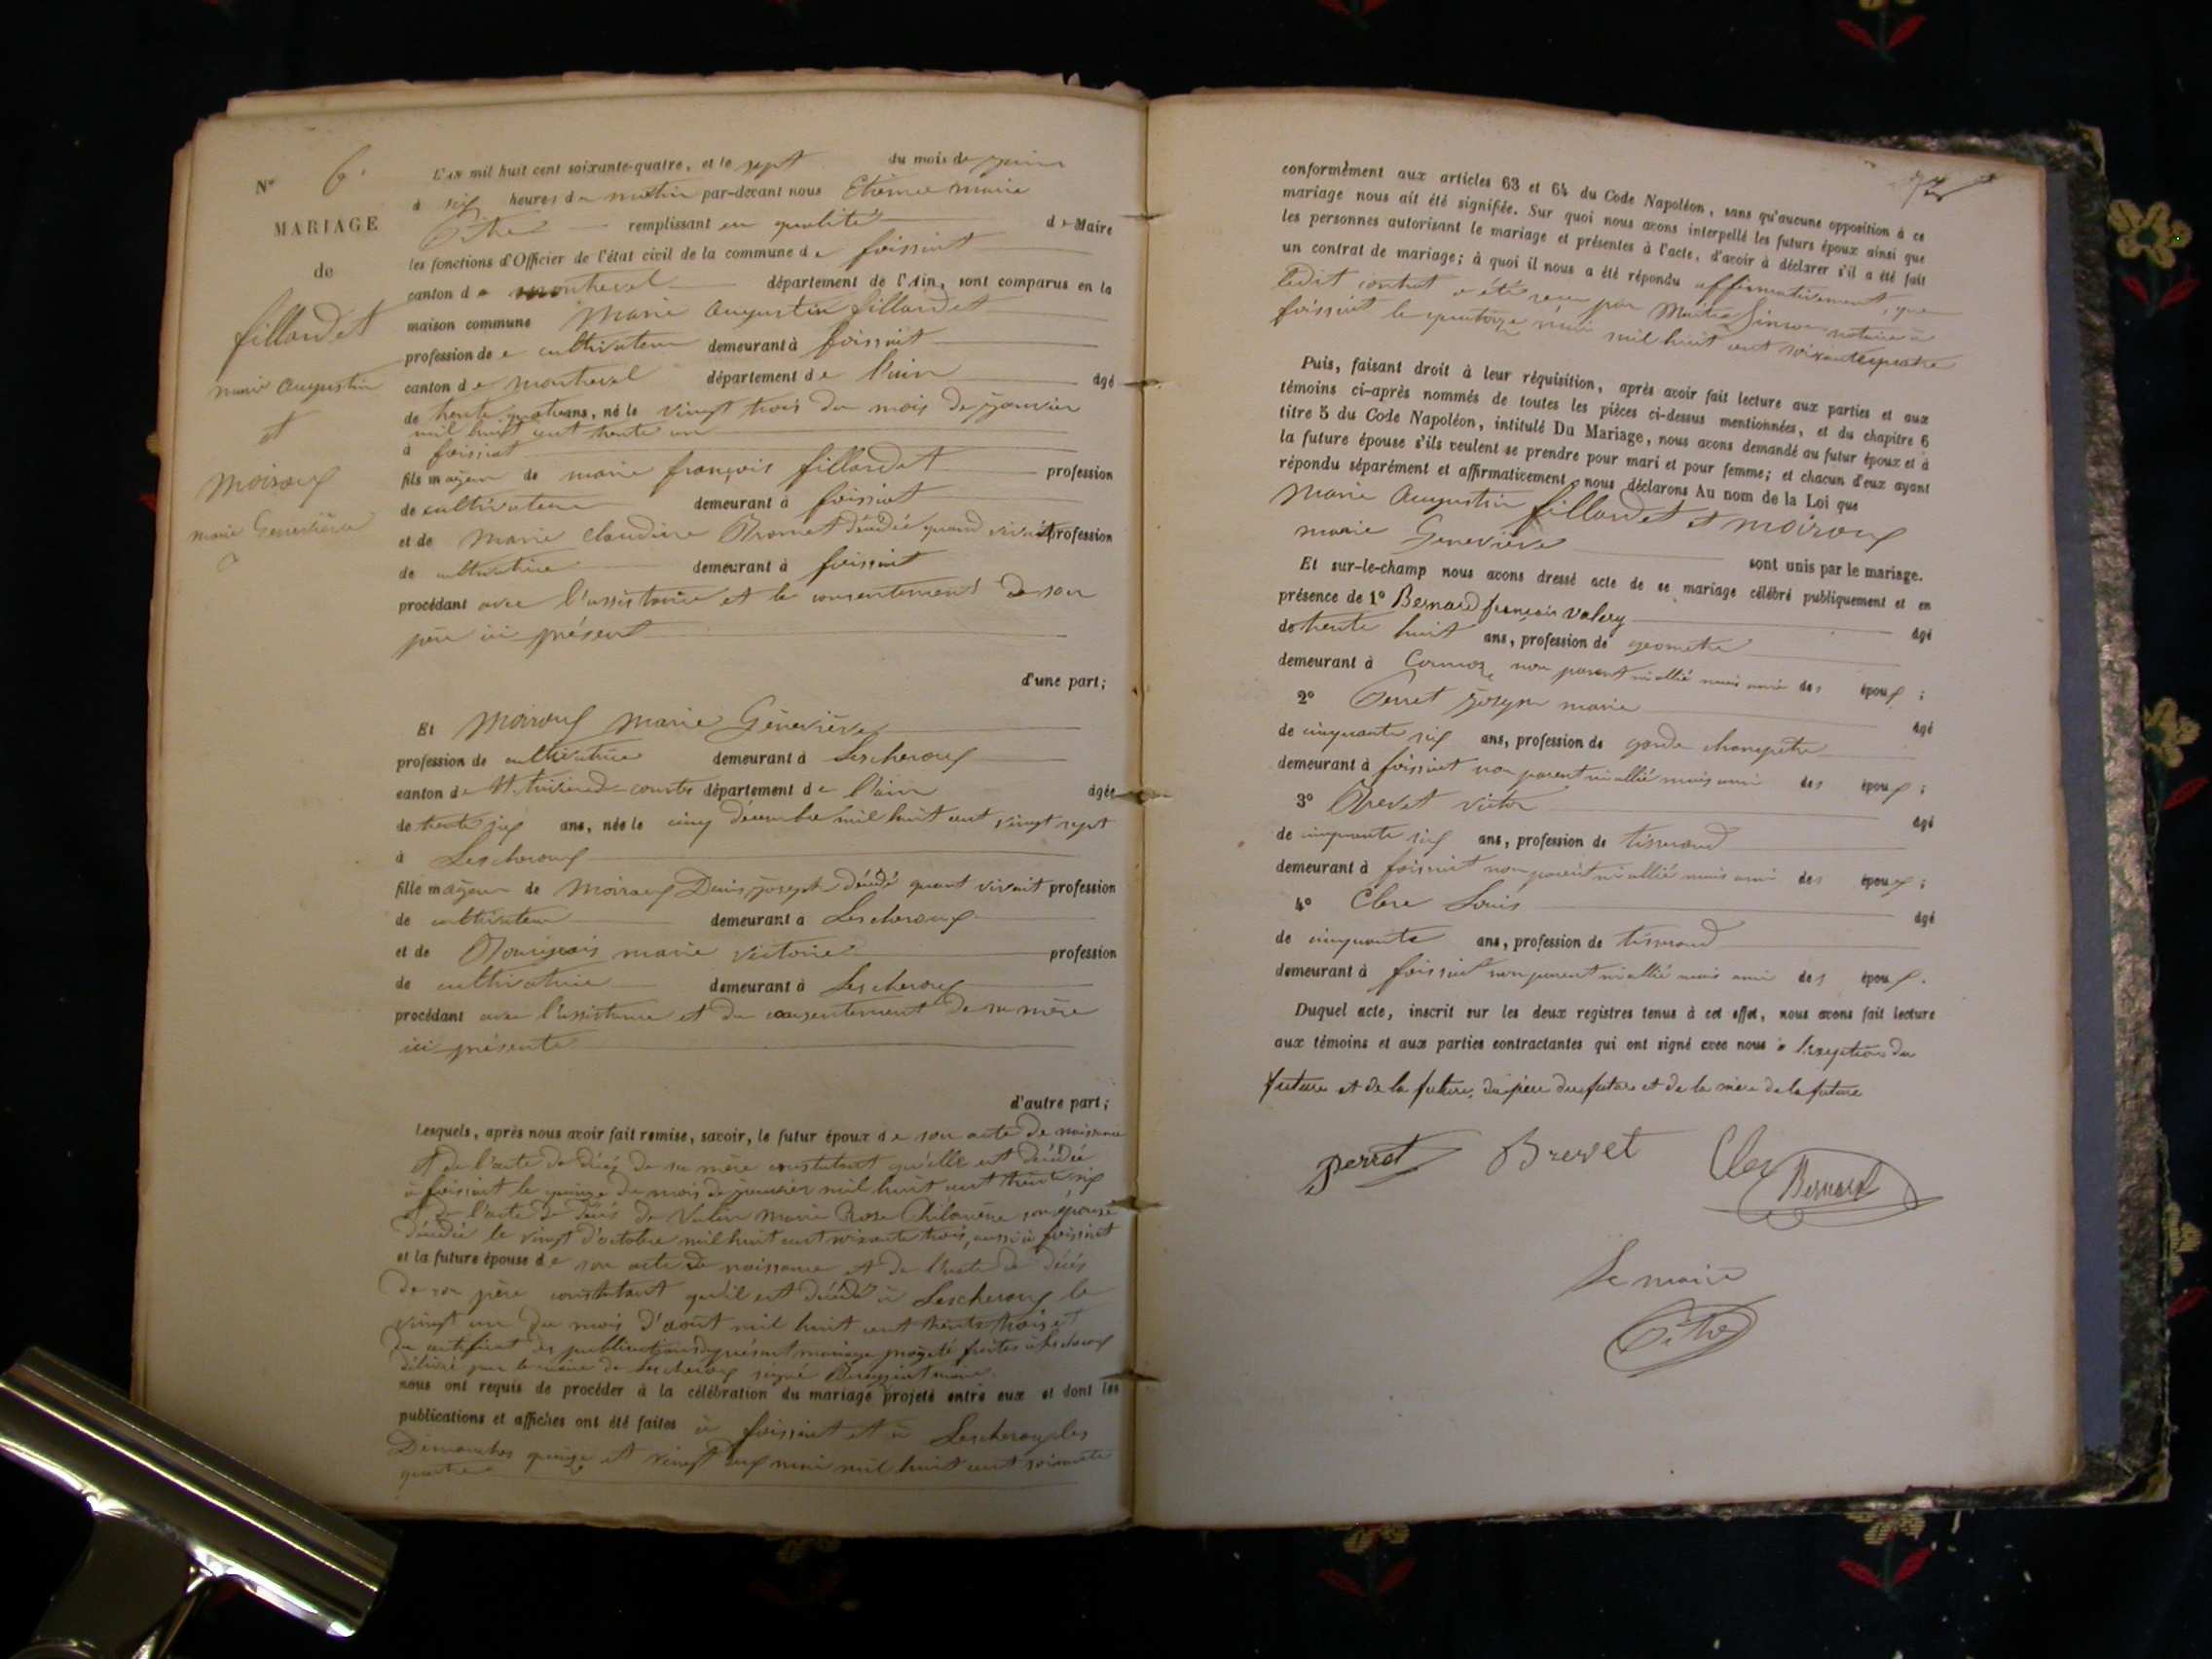 N° 6.
MARIAGE
de
fillardet
marie augustin
et
Moiroux
marie Geneviève
L'an mil huit cent soixante-quatre, et le sept du mois de juin
à six heures du matin par-devant nous Etienne marie
remplissant en qualité de Maire
les fonctions d'Officier de l'état civil de la commune de foissiat
canton de montrevel département de l'Ain, sont comparus en la
maison commune Marie augustin fillardet
profession de cultivateur demeurant à foissiat
canton de montrevel département de l'ain âgé
de trente ans, né le vingt trois du mois de janvier
mil huit cent trente un
à foissiat
fils majeur de marie françois fillardet profession
de cultivateur demeurant à foissiat
et de Marie Claudine décédée quand vivait profession
de cultivatrice demeurant à foissiat
procédant avec l'assistance et le consentement de son
père ici présent
d'une part;
Et Moiroux Marie Géneviève
profession de cultivatrice demeurant à Lescheroux
canton de St. trivier de courtes département de l'ain âgée
de trente six ans, née le cinq décembre mil huit cent vingt sept
à Lescheroux
fille majeure de Moiroux Denis joseph décédé quant vivait profession
de cultivateur demeurant à Lescheroux
et de Bourgeois marie Victoire profession
de cultivatrice demeurant à Lescheroux
procédant avec l'assistance et du consentement de sa mère
ici présente
d'autre part;
Lesquels, après nous avoir fait remise, savoir, le futur époux de son acte de naissance
et de l'acte de décès de sa mère constatant qu'elle est décédée
à foissiat le quinze du mois de janvier mil huit cent trente six
et de l'acte de décès de Marie Rose Philomène son épouse
décédée le vingt d'octobre mil huit cent soixante trois, aussi à foissiat
et la future épouse de son acte de naissance et de l'acte de décès
de son père constatant qu'il est décédé à Lescheroux le
vingt un du mois d'août mil huit cent trente trois et
du certificat des publications du présent mariage projeté faites à Lescheroux
délivré par le maire de Lescheroux signé maire.
nous ont requis de procéder à la célébration du mariage projeté entre eux et dont les
publications et affiches ont été faites à foissiat et à Lescheroux les
Dimanches quinze et vingt deux mai mil huit cent soixante
quatre
conformément aux articles 63 et 64 du Code Napoléon, sans qu'aucune opposition à ce
mariage nous ait été signifiée. Sur quoi nous avons interpellé les futurs époux ainsi que
les personnes autorisant le mariage et présentes à l'acte, d'avoir à déclarer s'il a été fait
un contrat de mariage; à quoi il nous a été répondu affirmativement, que
ledit contrat a été reçu par Maitre Simon notaire à
foissiat le quatorze mai mil huit cent soixante quatre
Puis, faisant droit à leur réquisition, après avoir fait lecture aux parties et aux
témoins ci-après nommés de toutes les pièces ci-dessus mentionnées, et du chapitre 6
titre 5 du Code Napoléon, intitulé Du Mariage, nous avons demandé au futur époux et à
la future épouse s'ils veulent se prendre pour mari et pour femme; et chacun d'eux ayant
répondu séparément et affirmativement, nous déclarons Au nom de la Loi que
Marie Augustin fillardet et moiroux
marie Geneviève sont unis par le mariage.
Et sur-le-champ nous avons dressé acte de ce mariage célébré publiquement et en
présence de 1° Bernard françois valery âgé
de trente huit ans, profession de géomètre
demeurant à Cormoz non parent ni allié mais ami des époux;
2° Perret joseph marie âgé
de cinquante six ans, profession de garde champetre
demeurant à foissiat non parent ni allié mais ami des époux;
3° Brevet victor âgé
de cinquante six ans, profession de tisserand
demeurant à foissiat non parent ni allié mais ami des époux;
4° Clerc Louis âgé
de cinquante ans, profession de tisserand
demeurant à foissiat non parent ni allié mais ami des époux.
Duquel acte, inscrit sur les deux registres tenus à cet effet, nous avons fait lecture
aux témoins et aux parties contractantes qui ont signé avec nous à l'exception du
future et de la future, du père du future et de la mère de la future
Perret Brevet Clerc Bernard
Le maire